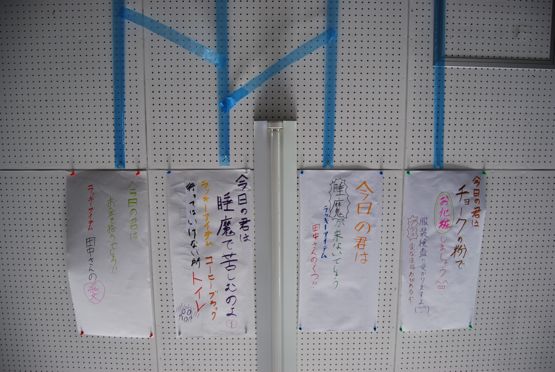 今日の君は
チョークの粉で
お化粧しましょう
今日の君は
睡魔が来ないでしょう
ラッキーアイテム
田中さんのくつ
今日の君は
睡魔で苦しむのよ
ラッキーアイテム コーヒーブラック
行ってはいけない所 トイレ
今日の君は
ラッキーアイテム
田中さんの